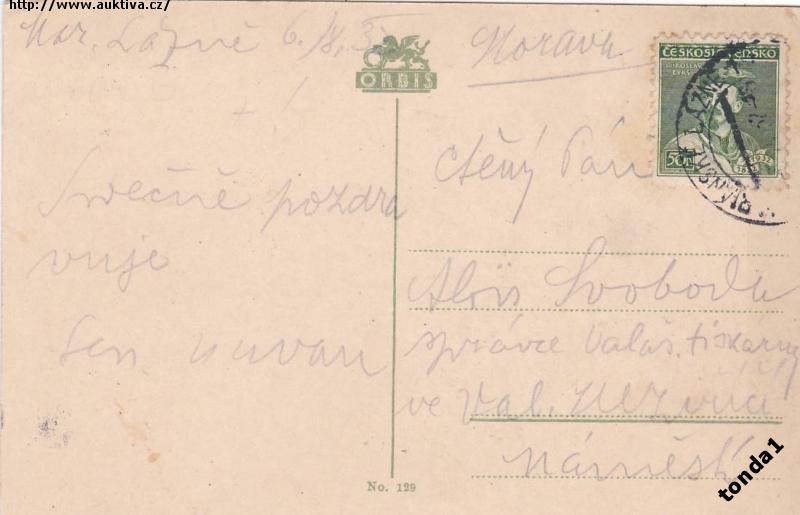 http://www.auktiva.cz/
Mar. Lázně 6./8. 3
ORBIS
Morava
ČESKOSLOVENSKO
MIROSLAV
TYRŠ
50h
1932
LÁZNĚ
Srdečně pozdra
vuje
Ctěný Pán
Alois Svoboda
správce Valaš. tiskárny
ve Val. Meziříčí
Náměstí
No. 129
tonda1